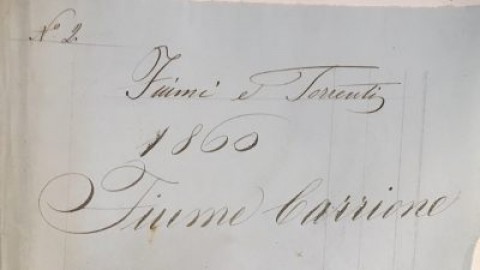 N° 2.
Fiumi e Torrenti
1860
Fiume Carrione